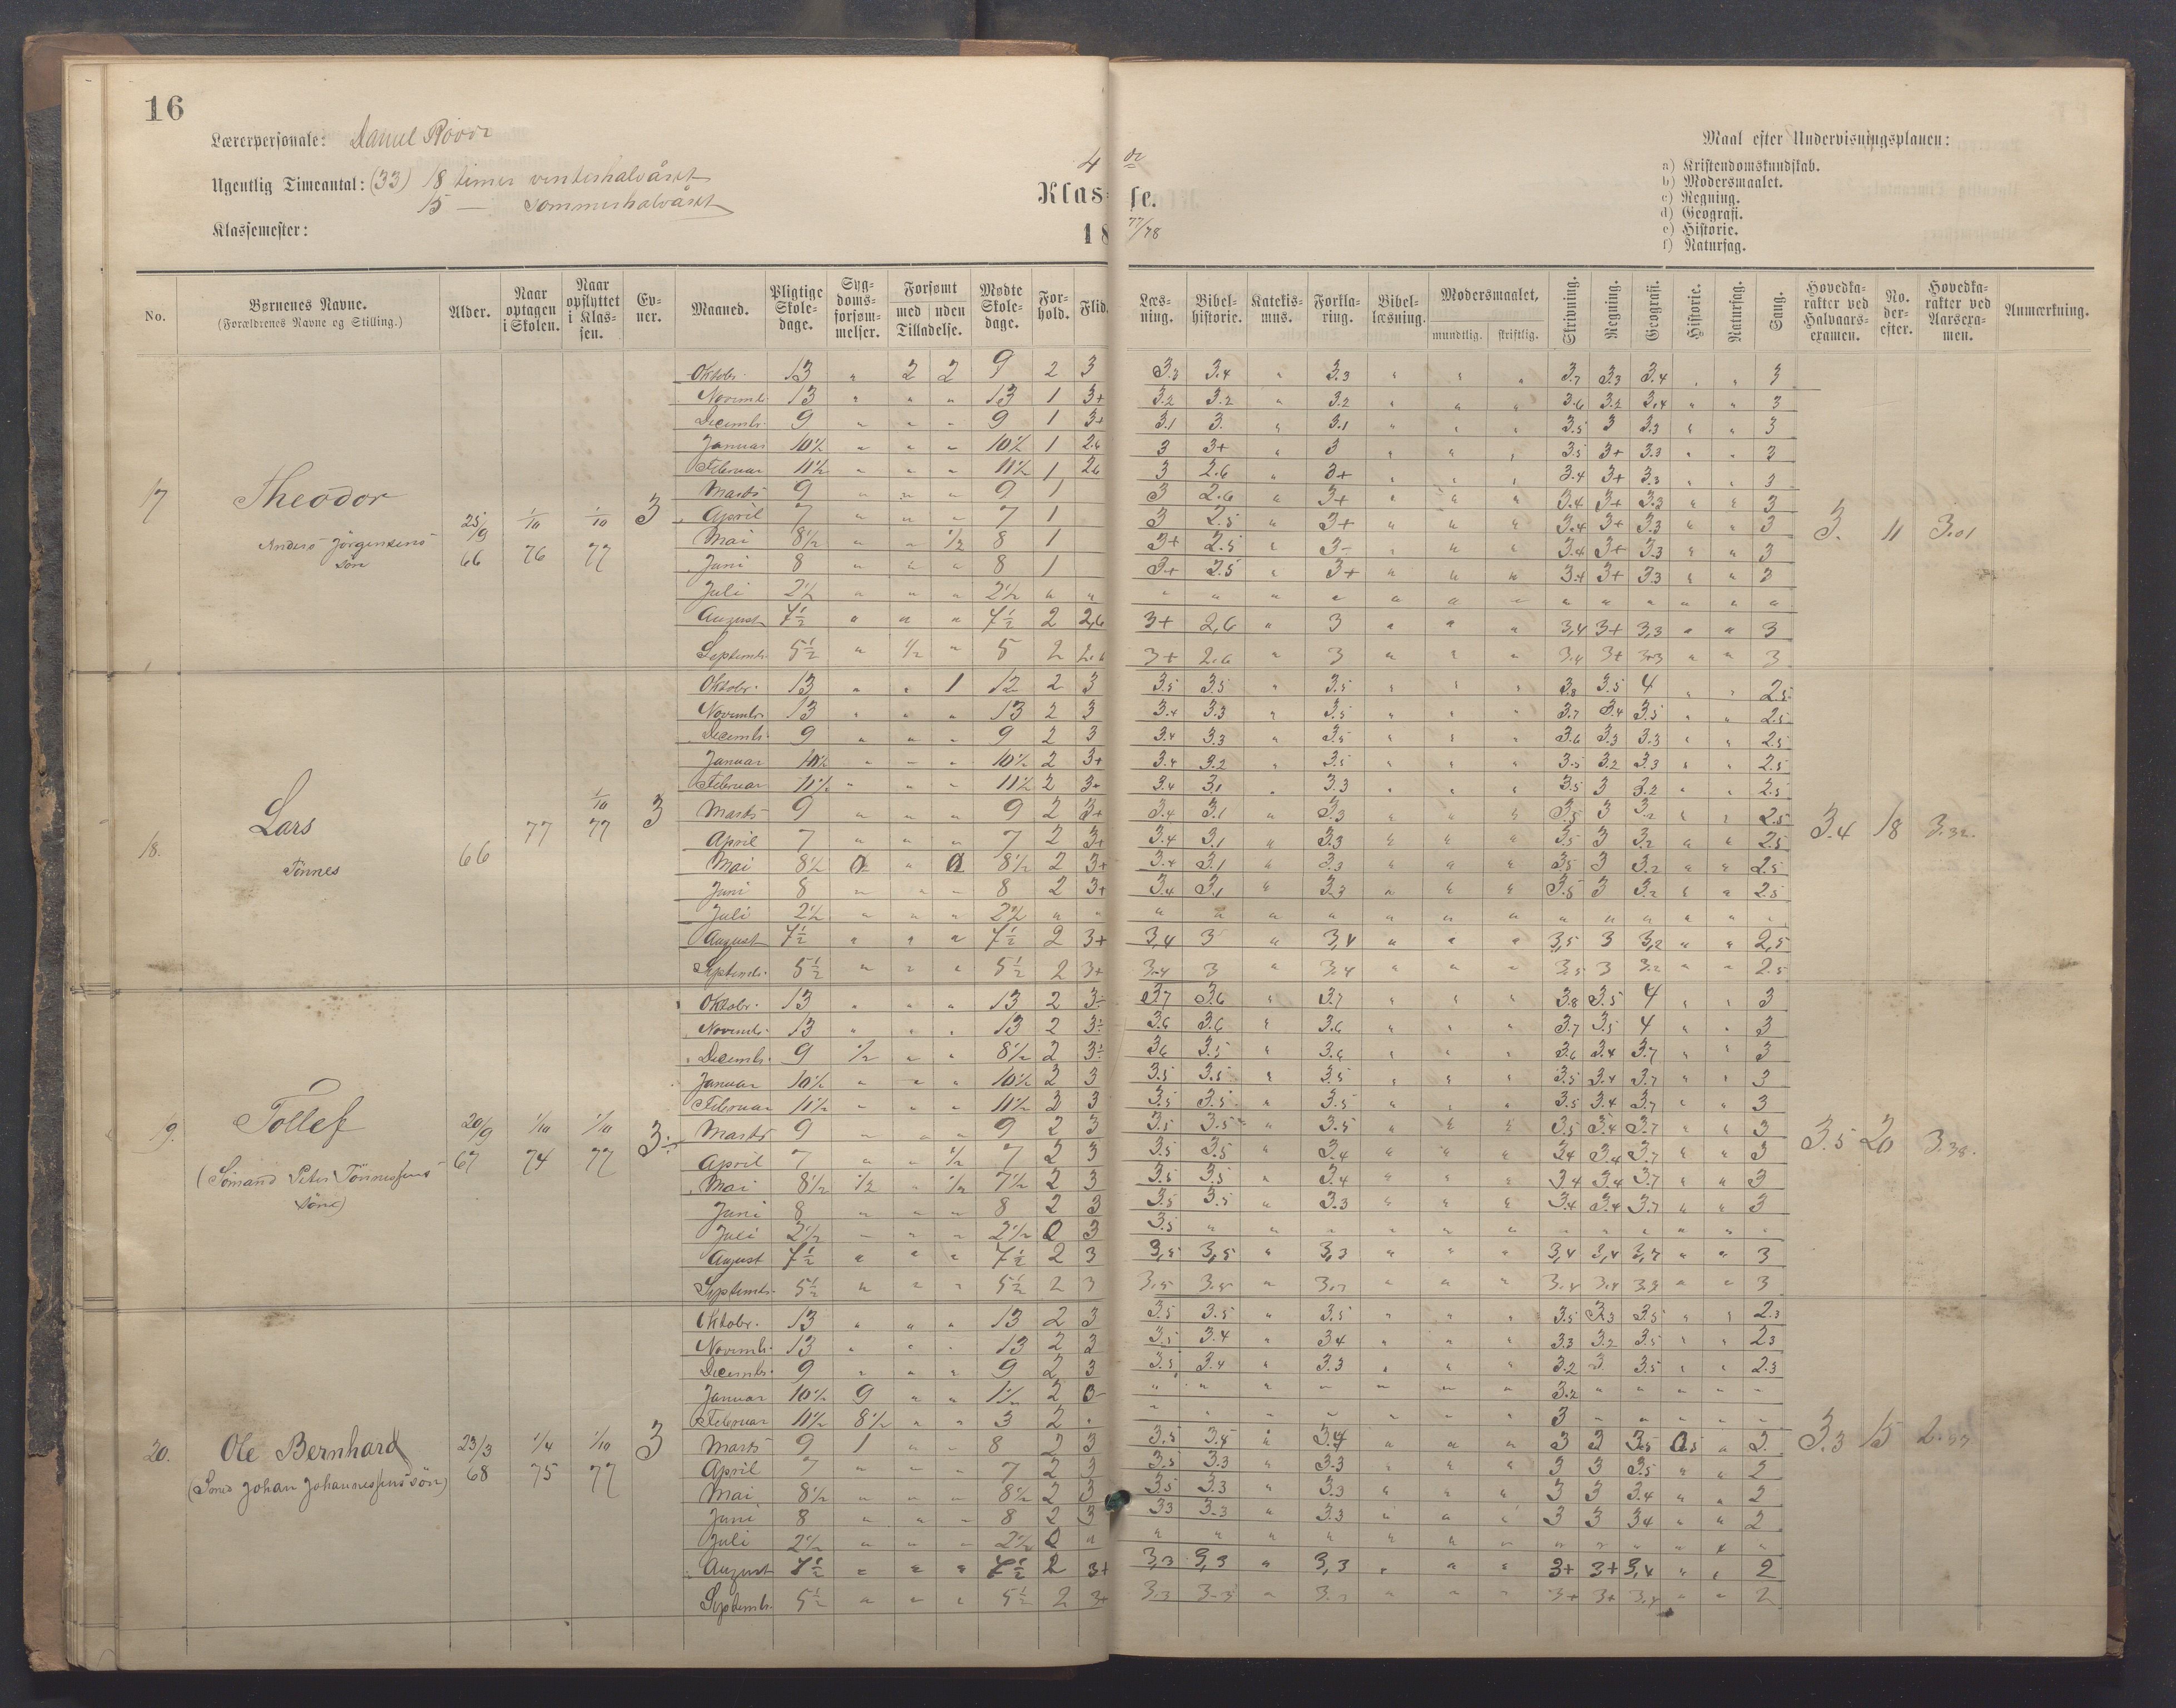 16
Lærerpersonale: Daniel
Ugentlig Timeantal: (33) 18 timer vinterhalvåret
15 — Sommerhalvåret
Klassemester:
4 de
Klasse.
1877/78
Maal efter Undervisningsplanen:
a) Kristendomskundskab.
b) Modersmaalet.
c) Regning.
d) Geografi.
e) Historie.
f) Naturfag.
No. Børnenes Navne. (Forældrenes Navne og Stilling.) Alder. Naar optagen i Skolen. Naar opflyttet i Klassen. Evner. Maaned. Pligtige Skoledage. Sygdomsforsømmelser. Forsømt med uden Tilladelse. Mødte Skoledage. Forhold. Flid. Læsning. Bibelhistorie. Katekismus. Forklaring. Bibellæsning. Modersmaalet, mundtlig. skriftlig. Skrivning. Regning. Geografi. Historie. Naturfag. Sang. Hovedkarakter ved Halvaarsexamen. No. derefter. Hovedkarakter ved Aarsexamen. Anmærkning.
17 Theodor
Anders Jörgensens sön
25/9 66 1/10 76 1/10 77 3
Oktobr. 13 " 2 2 9 2 3 3.3 3.4 " 3.3 " " " 3.7 3.3 3.4 " " 3
Novembr. 13 " " " 13 1 3+ 3.2 3.2 " 3.2 " " " 3.6 3.2 3.4 " " 3
Decembr. 9 " " " 9 1 3+ 3.1 3. " 3.1 " " " 3.5 3 3.3 " " 3
Januar 10½ " " " 10½ 1 2.6 3 3+ " 3 " " " 3.5 3+ 3.3 " " 3
Februar 11½ " " " 11½ 1 2.6 3 2.6 " 3+ " " " 3.4 3+ 3.3 " " 3
Marts 9 " " " 9 1 3 2.6 " 3+ " " " 3.4 3+ 3.3 " " 3
April 7 " " " 7 1 3 2.5 " 3+ " " " 3.4 3+ 3.3 " " 3
Mai 8½ " " ½ 8 1 3+ 2.5 " 3 " " " 3.4 3+ 3.3 " " 3
Juni 8 " " " 8 1 3+ 2.5 " 3+ " " " 3.4 3+ 3.3 " " 3
Juli 2½ " " " 2½ " " " " " " " " " " " " " " "
August 7½ " " " 7½ 2 2,6 3+ 2,6 " 3 " " " 3,4 3+ 3,3 " " 3
Septembr. 5½ " ½ " 5 2 2.6 3+ 2.6 " 3 " " " 3.4 3+ 3.3 " " 3
3. 11 3.01
18. Lars
Tönnes
66 77 1/10 77 3
Oktobr. 13 " " 1 12 2 3 3.5 3.5 " 3.5 " " " 3.8 3.5 4 " " 2.5
Novembr. 13 " " " 13 2 3 3.4 3.3 " 3.5 " " " 3.7 3.4 3.5 " " 2.5
Decembr. 9 " " " 9 2 3 3.4 3.3 " 3.5 " " " 3.6 3.3 3.3 " " 2.5
Januar 10½ " " " 10½ 2 3+ 3.4 3.2 " 3.5 " " " 3.5 3.2 3.3 " " 2.5
Februar 11½ " " " 11½ 2 3+ 3.4 3.1 " 3.3 " " " 3.5 3 3.2 " " 2.5
Marts 9 " " " 9 2 3+ 3.4 3.1 " 3.3 " " " 3.5 3 3.2 " " 2.5
April 7 " " " 7 2 3+ 3.4 3.1 " 3.3 " " " 3.5 3 3.2 " " 2.5
Mai 8½ " 8½ 2 3+ 3.4 3.1 " 3.3 " " " 3.5 3 3.2 " " 2.5
Juni 8 " " " 8 2 3+ 3.4 3.1 " 3.3 " " " 3.5 3 3.2 " " 2.5
Juli 2½ " " " 2½ " " " " " " " " " " " " " " "
August 7½ " " " 7½ 2 3+ 3,4 3 " 3,4 " " " 3,5 3 3,2 " " 2,5
Septembr. 5½ " " " 5½ 2 3+ 3.4 3 " 3.4 " " " 3.5 3 3.2 " " 2.5
3.4 18 3.32.
19. Tollef
(Sömand Peter Tönnessens Sön)
20/9 67 1/10 74 1/10 77 3÷
Oktobr. 13 " " " 13 2 3÷ 3.7 3.6 " 3.7 " " " 3.8 3.5 4 " " 3
Novembr. 13 " " " 13 2 3÷ 3.6 3.6 " 3.6 " " " 3.7 3.5 4 " " 3
Decembr. 9 ½ " " 8½ 2 3÷ 3.6 3.5 " 3.6 " " " 3.6 3.4 3.7 " " 3
Januar 10½ " " " 10½ 2 3 3.5 3.5 " 3.5 " " " 3.5 3.4 3.7 " " 3
Februar 11½ " " " 11½ 2 3 3.5 3.5 " 3.5 " " " 3.5 3.4 3.7 " " 3
Marts 9 " " " 9 2 3 3.5 3.5 " 3.5 " " " 3.5 3.4 3.7 " " 3
April 7 " " ½ 7 2 3 3.5 3.5 " 3.4 " " " 3.4 3.4 3.7 " " 3
Mai 8½ ½ " ½ 7½ 2 3 3.5 3.5 " 3.4 " " " 3.4 3.4 3.7 " " 3
Juni 8 " " " 8 2 3 3.5 3.5 " 3.3 " " " 3.4 3.4 3.7 " " 3
Juli 2½ " " " 2½ 0 3 3.5 " " " " " " " " " " " "
August 7½ " " " 7½ 2 3 3,5 3,5 " 3,3 " " " 3,4 3,4 3,7 " " 3
Septembr. 5½ " " " 5½ 2 3 3.5 3.5 " 3.3 " " " 3.4 3.4 " " 3
3.5 20 3.38.
20. Ole Bernhard
(Sömd Johan Johannessens sön)
23/3 68 1/4 75 1/10 77 3
Oktobr. 13 " " " 13 2 3 3.5 3.5 " 3.5 " " " 3.5 3.3 3.5 " " 2.3
Novembr. 13 " " " 13 2 3 3.5 3.4 " 3.4 " " " 3.3 3.2 3.5 " " 2.3
Decembr. 9 " " " 9 2 3 3.5 3.4 " 3.3 " " " 3.2 3 3.5 " " 2.3
Januar 10½ 9 " " 1½ 2 " " " " " " " 3.2 " " " " "
Februar 11½ 8½ " " 3 2 " " " " " " " " 3 " " " " "
Marts 9 1 " " 8 2 3 3.5 3.4 " 3.4 " " " 3 3 3.5 " 2
April 7 " " " 7 2 3 3.5 3.3 " 3.3 " " " 3 3 3.5 " " 2
Mai 8½ " " " 8½ 2 3 3.5 3.3 " 3.3 " " " 3 3 3.4 " " 2
Juni 8 " " " 8 2 3 3.3 3.3 " 3.3 " " " 3 3 3.4 " " 2
Juli 2½ " " " 2½ 0 " " " " " " " " " " " " " "
August 7½ " " " 7½ 2 3+ 3,3 3,3 " 3,3 " " " 3+ 3+ 3,4 " " 2
Septembr. 5½ " " " 5½ 2 3+ 3.3 3.3 " 3.3 " " " 3+ 3+ 3.4 " " 2
3.3 15